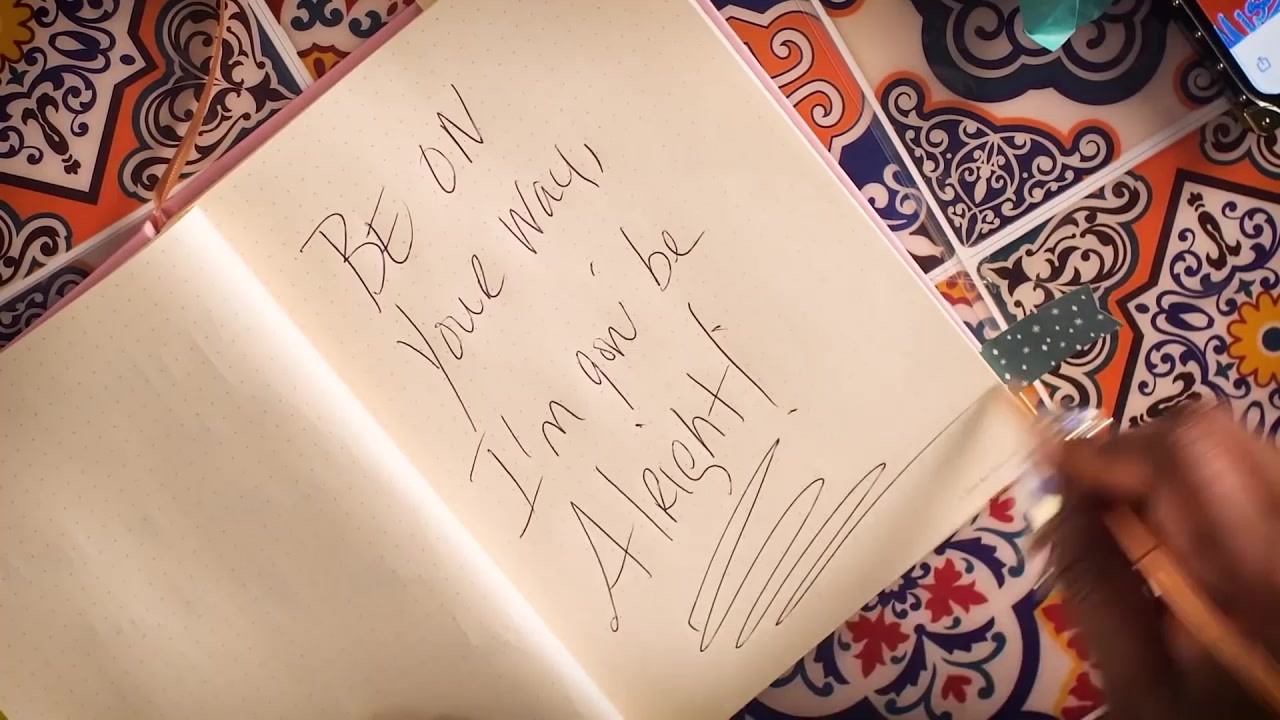 BE ON
YOUR WAY,
I'm gon be
Alright!